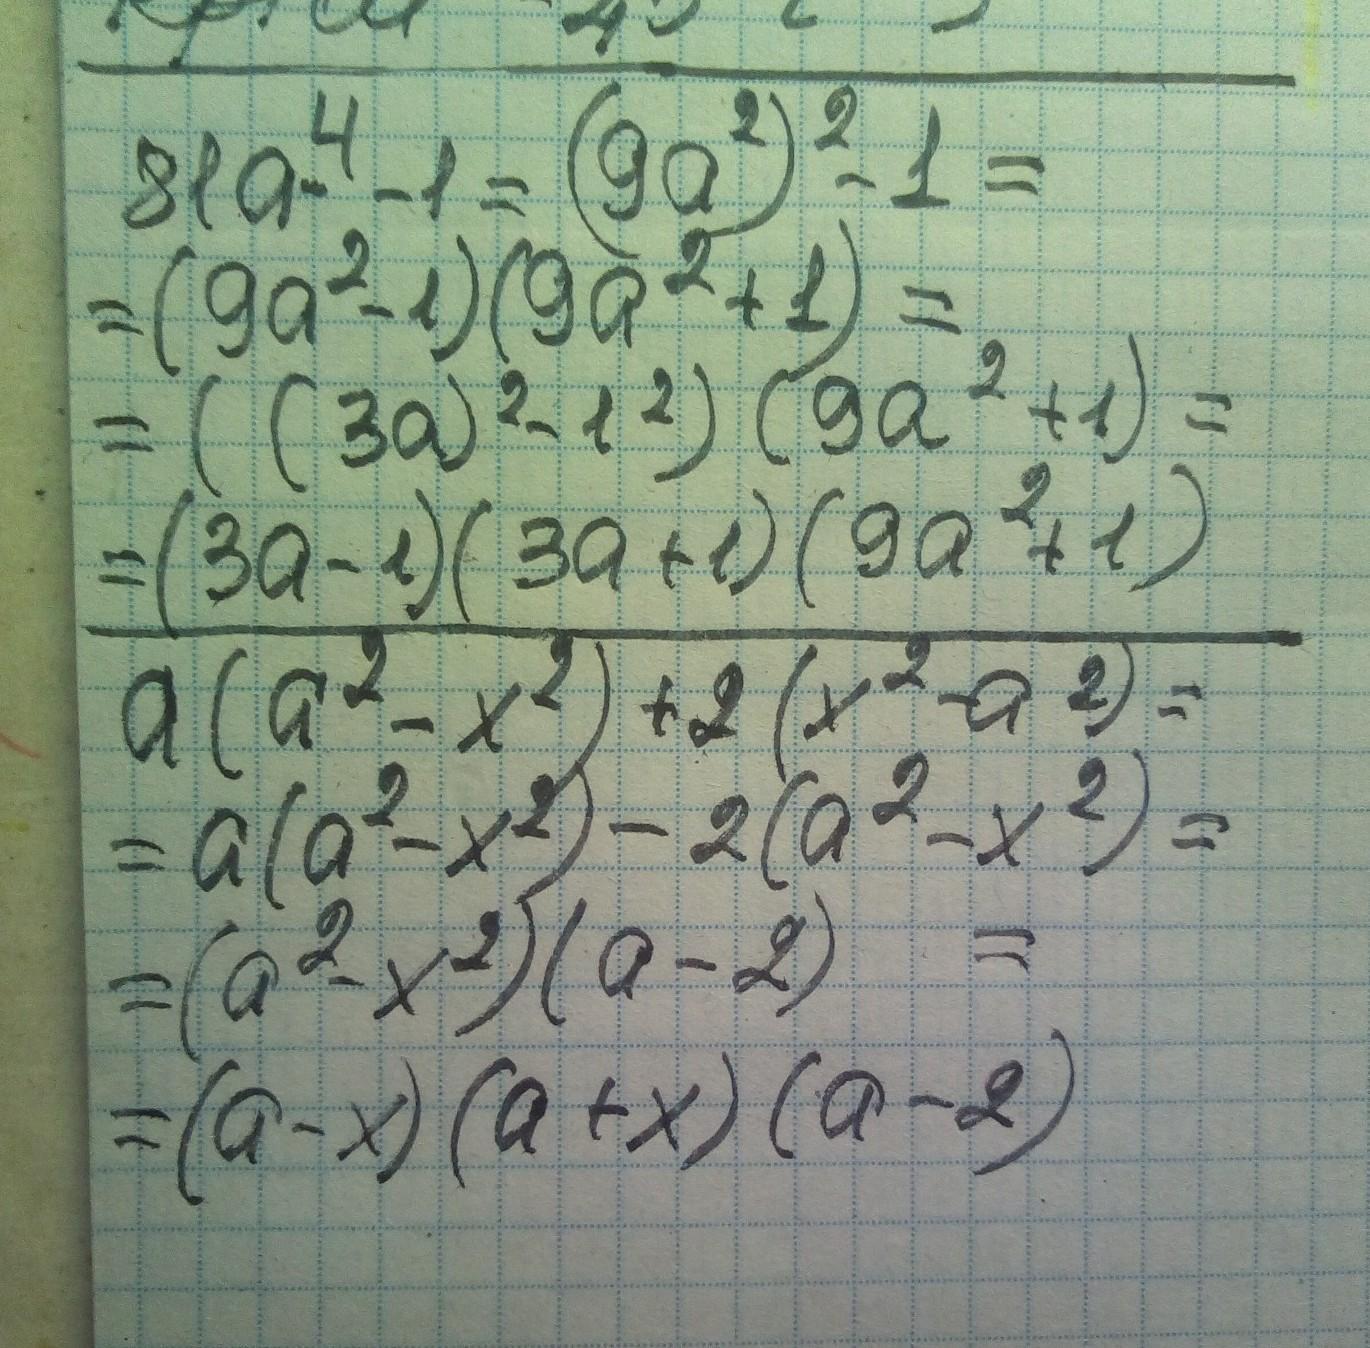 81a⁴ - 1 = (9a²)² - 1 =
= (9a² - 1)(9a² + 1) =
= ((3a)² - 1²)(9a² + 1) =
= (3a - 1)(3a + 1)(9a² + 1)
a(a² - x²) + 2(x² - a²) =
= a(a² - x²) - 2(a² - x²) =
= (a² - x²)(a - 2) =
= (a - x)(a + x)(a - 2)